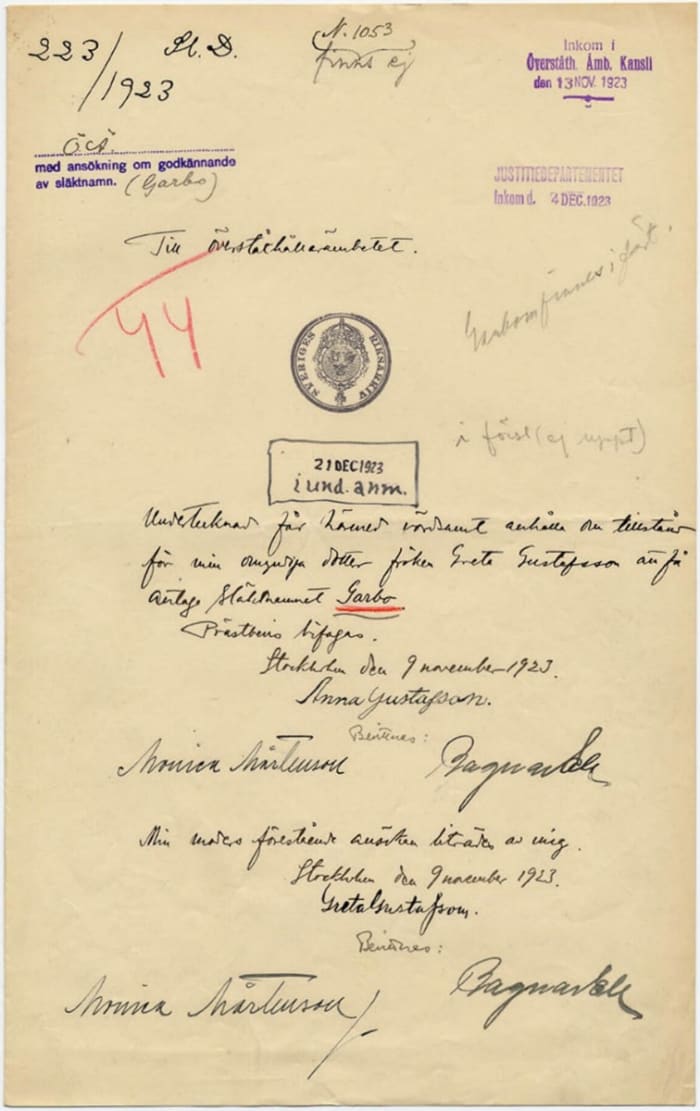 223/1923
N. 1053
finns ej
Inkom i
Överståth. Ämb. Kansli
den 13 NOV. 1923
Ö.Ä.
med ansökning om godkännande
av släktnamn. (Garbo)
JUSTITIEDEPARTEMENTET
Inkom d. 4 DEC. 1923
Till Överståthållarämbetet.
SVERIGES RIKSARKIV
i först (ej uppt)
21 DEC 1923
i und. anm.
Undertecknad får härmed vördsamt anhålla om tillstånd
för min omyndiga dotter fröken Greta Gustafsson att få
antaga släktnamnet Garbo
Prästbevis bifogas.
Stockholm den 9 november 1923.
Anna Gustafsson.
Bevittnes:
Monica Mårtenson
Min moders förestående ansökan biträdes av mig.
Stockholm den 9 november 1923.
Greta Gustafsson.
Bevittnes:
Monica Mårtenson